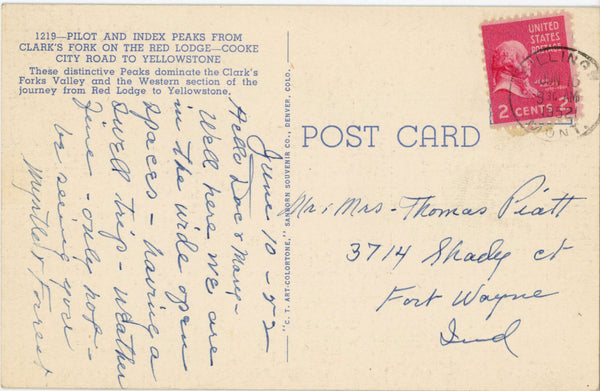 1219—PILOT AND INDEX PEAKS FROM
CLARK'S FORK ON THE RED LODGE—COOKE
CITY ROAD TO YELLOWSTONE
These distinctive Peaks dominate the Clark's
Forks Valley and the Western section of the
journey from Red Lodge to Yellowstone.
June 10-52
Hello Doc & Mary-
Well here we are
in the wide open
spaces - having a
swell trip - weather
fine - only hot -
be seeing you
Myrtle & Forrest
"C. T. ART-COLORTONE," SANBORN SOUVENIR CO., DENVER, COLO.
POST CARD
UNITED
STATES
POSTAGE
2 CENTS 2
BILLINGS
JUN
AM
MONT.
Mr. & Mrs - Thomas Piatt
3714 Shady ct
Fort Wayne
Ind